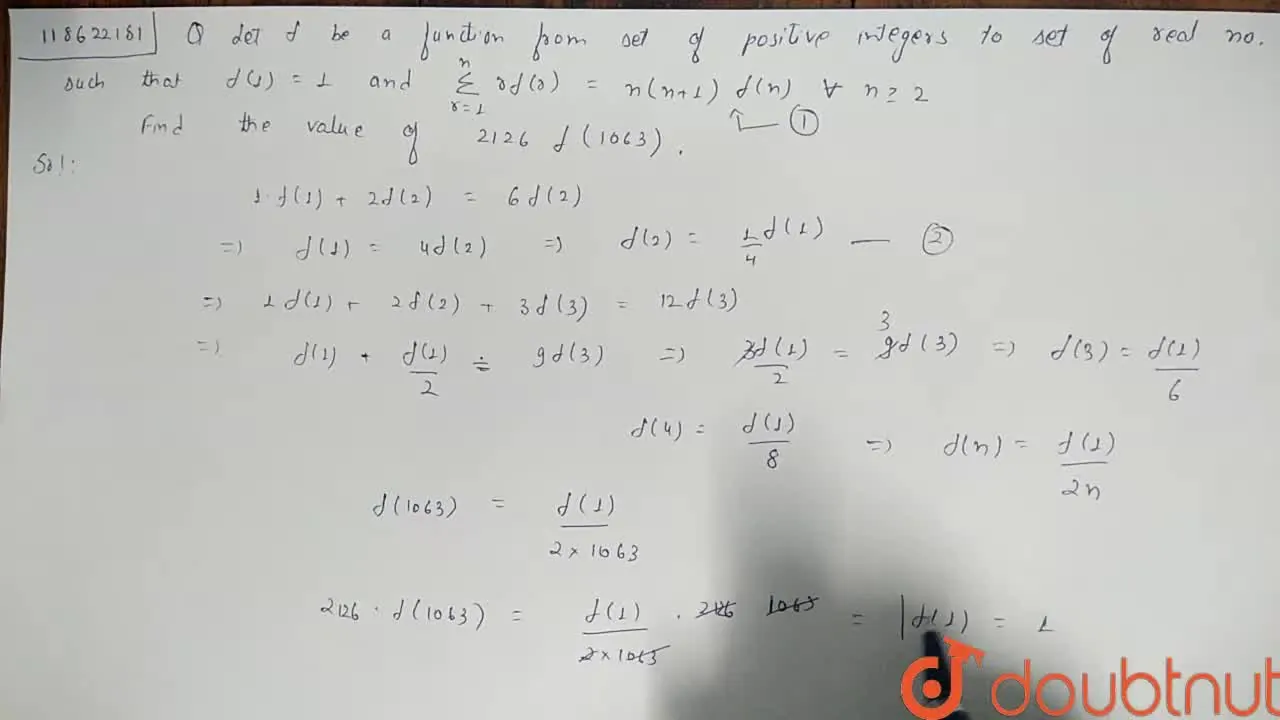 118622181 Q Let f be a function from set of positive integers to set of real no.
such that f(1) = 1 and n Σ r=1 rf(r) = n(n+1) f(n) ∀ n ≥ 2
①
Find the value of 2126 f(1063).
Sol:
1·f(1) + 2f(2) = 6f(2)
=> f(1) = 4f(2) => f(2) = 1/4 f(1) — ②
=> 1f(1) + 2f(2) + 3f(3) = 12f(3)
=> f(1) + f(1)/2 = 9f(3) => 3f(1)/2 = 9 3 f(3) => f(3) = f(1)/6
f(4) = f(1)/8 => f(n) = f(1)/2n
f(1063) = f(1)/2×1063
2126 · f(1063) = f(1)/2×1063 · 2126 1063 = f(1) = 1
doubtnut